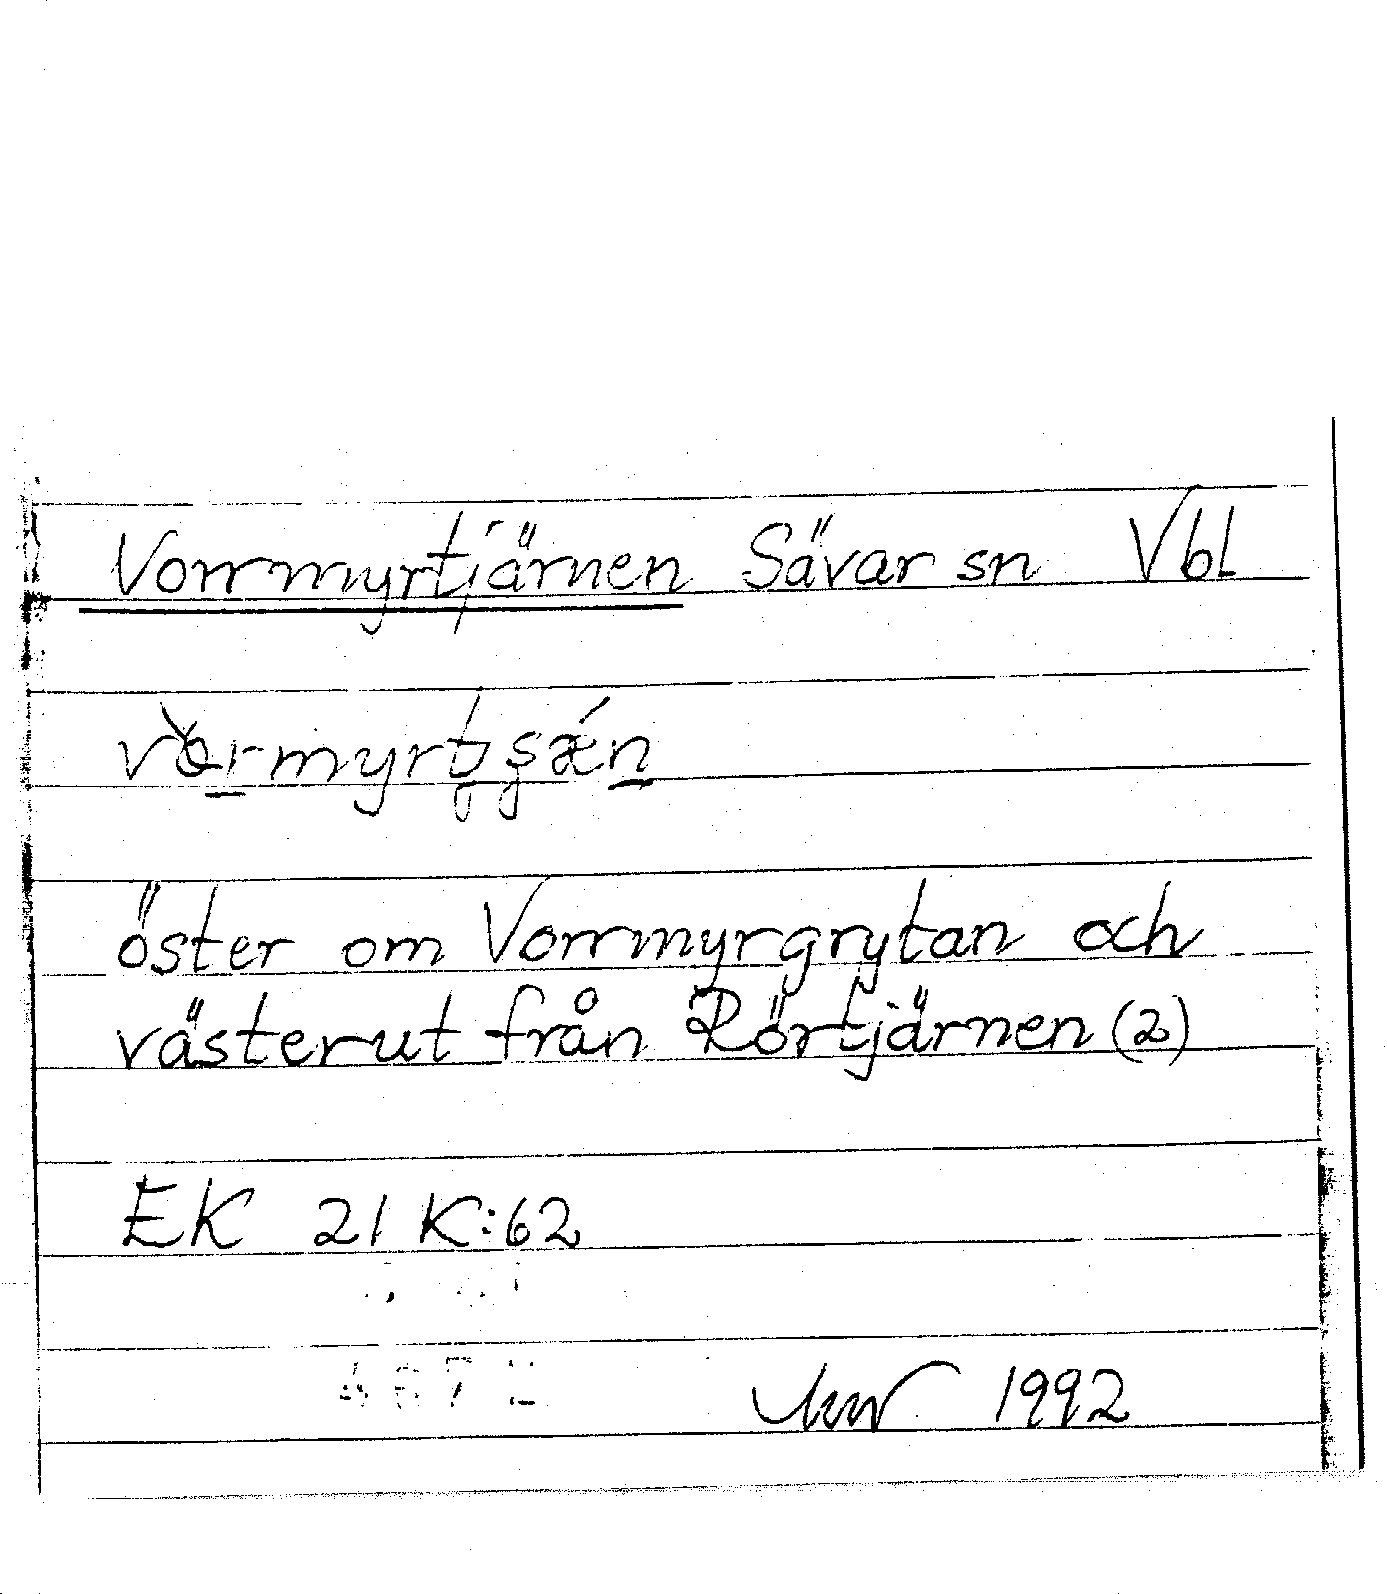 Vorrmyrtjärnen Sävar sn Vbl
öster om Vorrmyrgrytan och
västerut från Rörtjärnen (2)
EK 21 K:62
1992